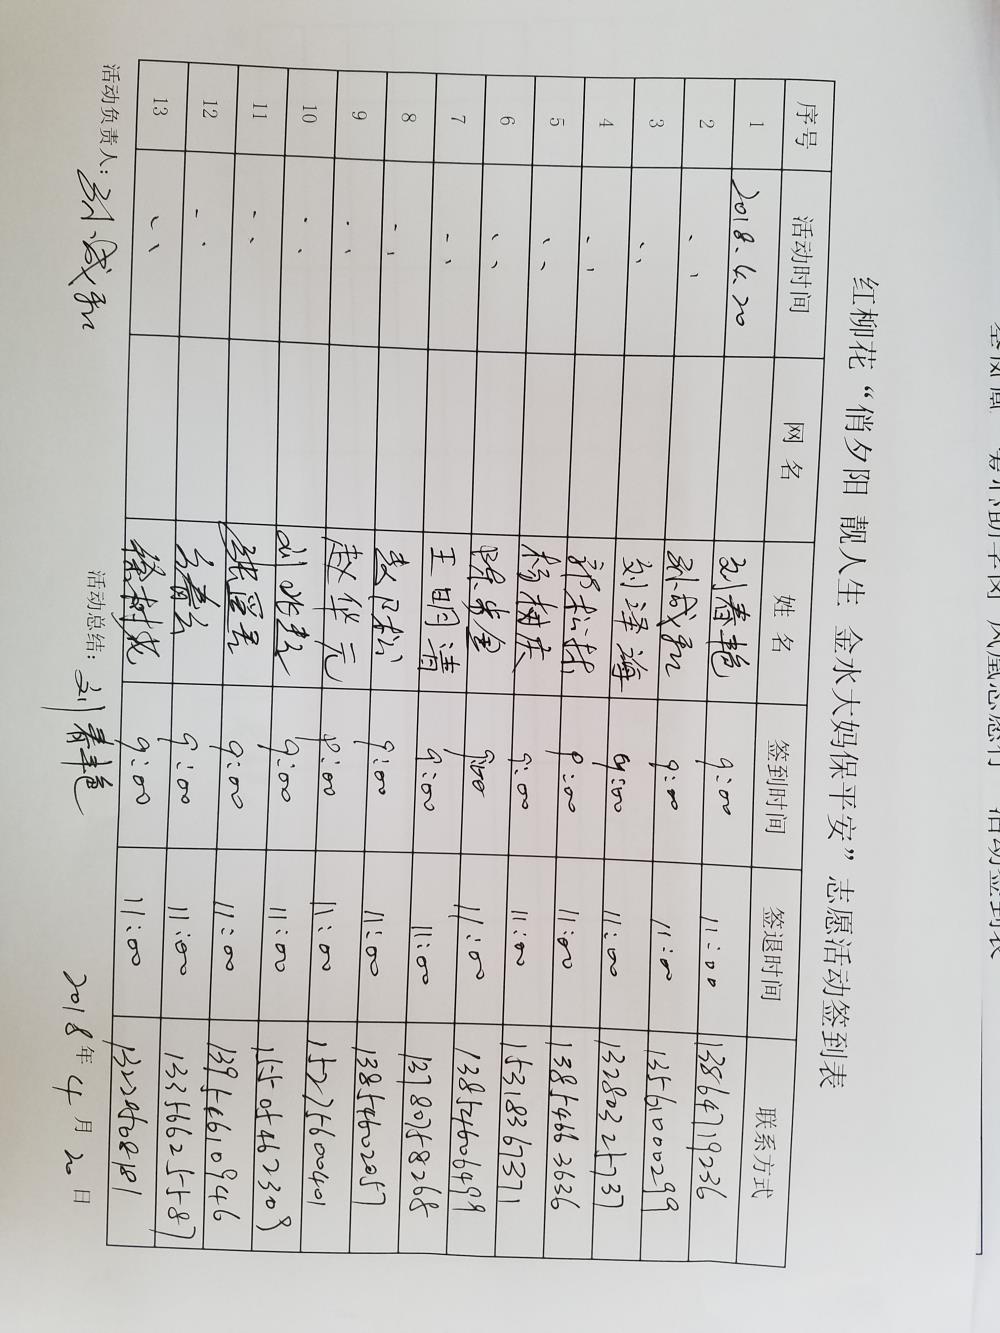 红柳花“俏夕阳 靓人生 金水大妈保平安”志愿活动签到表
序号 活动时间 网 名 姓 名 签到时间 签退时间 联系方式
1 2018.4.20 刘春艳 9:00 11:00 13864719236
2 、、 孙成新 9:00 11:00 13561000299
3 、、 刘泽海 9:00 11:00 13280325737
4 、、 9:00 11:00 13854663636
5 、、 杨树庆 9:00 11:00 15318367371
6 、、 9:00 11:00 13854606499
7 、、 王明清 9:00 11:00 13780758268
8 、、 9:00 11:00 13854602057
9 、、 赵华元 9:00 11:00 15275600401
10 、、 9:00 11:00 15505462309
11 、、 9:00 11:00 13954610946
12 、、 9:00 11:00 13356625587
13 、、 9:00 11:00
活动负责人: 孙成新 活动总结: 刘春艳 2018年4月20日